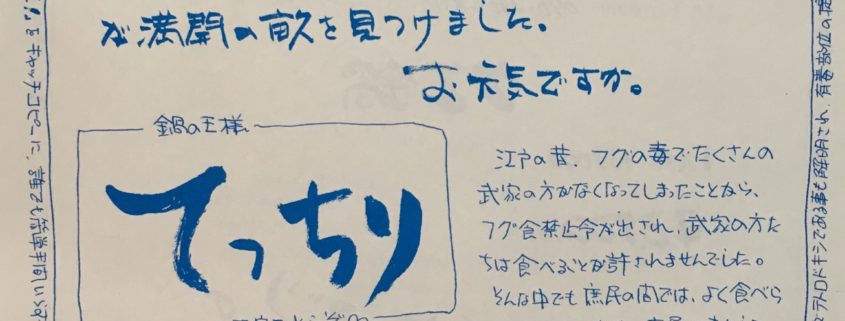 が満開の畝を見つけました。
お元気ですか。
鍋の王様
てっちり
江戸の昔、フグの毒でたくさんの
武家の方がなくなってしまったことから、
フグ食禁止令が出され、武家の方た
ちは食べることが許されませんでした。
そんな中でも庶民の間では、よく食べら
をキャッチコピーに、誰でも簡単手間いらず
テトロドトキシンである事も解明され、有毒部位の